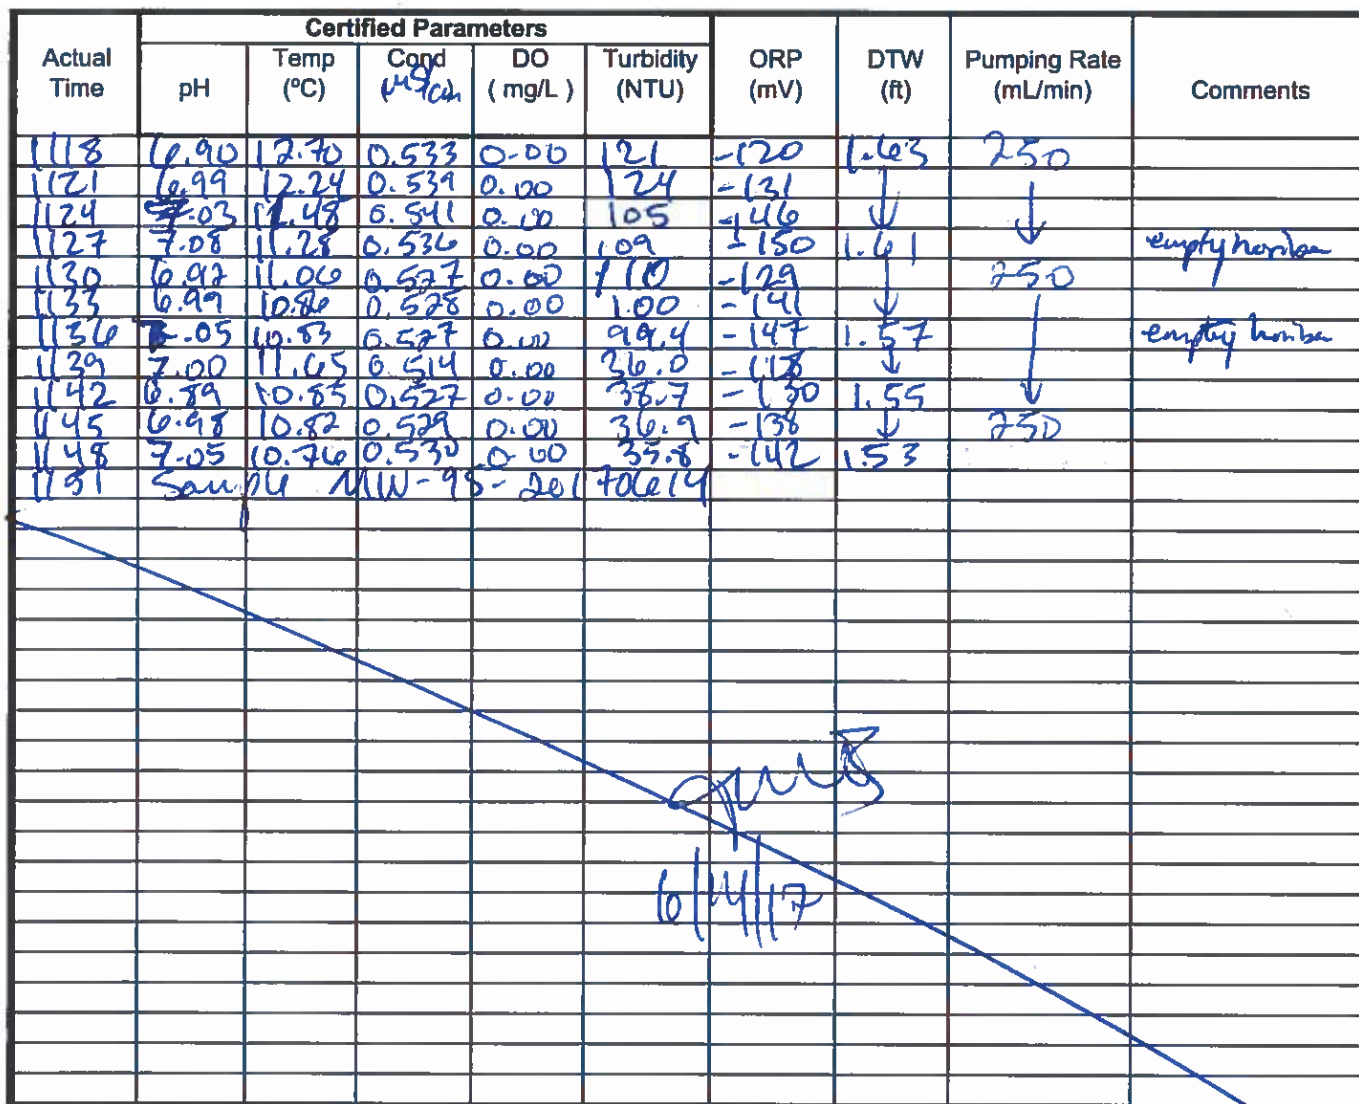 Certified Parameters
Actual Time pH Temp (ºC) Cond µS/cm DO ( mg/L ) Turbidity (NTU) ORP (mV) DTW (ft) Pumping Rate (mL/min) Comments
1118 6.90 12.70 0.533 0.00 121 -120 1.63 250
1121 6.99 12.24 0.539 0.00 124 -131 ↓ ↓
1124 7.03 11.48 0.541 0.00 105 -146
1127 7.08 11.28 0.536 0.00 109 -150 1.61 empty horiba
1130 6.92 11.06 0.527 0.00 110 -129 ↓ 250
1133 6.99 10.86 0.528 0.00 100 -141 ↓
1136 7.05 10.83 0.527 0.00 99.4 -147 1.57 empty horiba
1139 7.00 11.65 0.514 0.00 36.0 ↓
1142 6.89 10.85 0.527 0.00 38.7 -130 1.55
1145 6.98 10.82 0.529 0.00 36.9 -138 ↓ 250
1148 7.05 10.76 0.530 0.00 35.8 -142 1.53
1151 Sample MW-9S-20170614
6/14/17